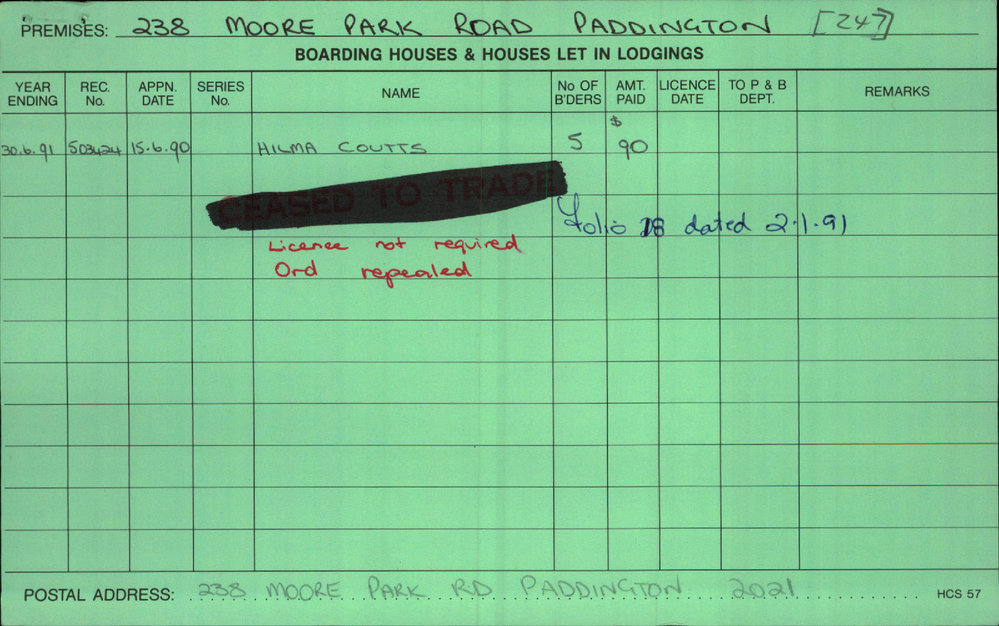 PREMISES: 238 MOORE PARK ROAD PADDINGTON [247]
BOARDING HOUSES & HOUSES LET IN LODGINGS
YEAR ENDING REC. No. APPN. DATE SERIES No. NAME No OF B'DERS AMT. PAID LICENCE DATE TO P & B DEPT. REMARKS
$
30.6.91 503424 15.6.90 HILMA COUTTS 5 90
CEASED TO TRADE
Folio 18 dated 2.1.91
Licence not required
Ord repealed
POSTAL ADDRESS: 238 MOORE PARK RD PADDINGTON 2021 HCS 57